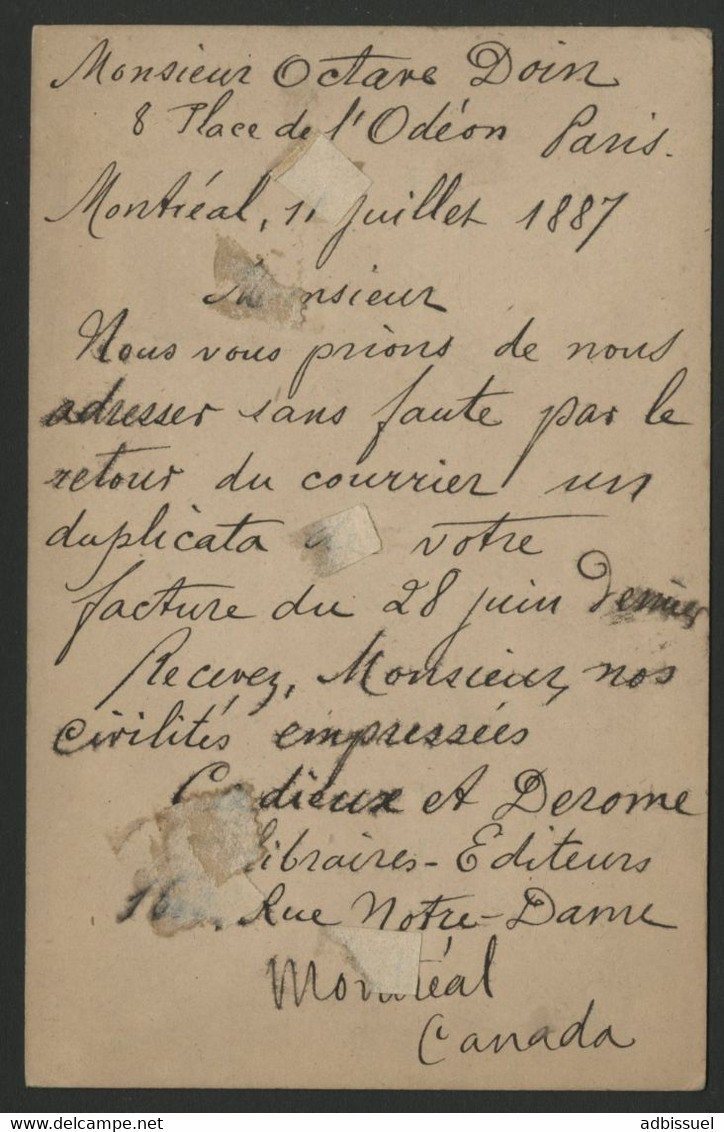 Monsieur Octave Doin
8 Place de l'Odéon Paris.
Montréal, 11 juillet 1887
Monsieur
Nous vous prions de nous
adresser sans faute par le
retour du courrier un
duplicata votre
facture du 28 juin dernier
Recevez, Monsieur, nos
civilités empressées
Cadieux et Derome
Libraires-Editeurs
Rue Notre-Dame
Montréal
Canada
www.delcampe.net
adbissuel